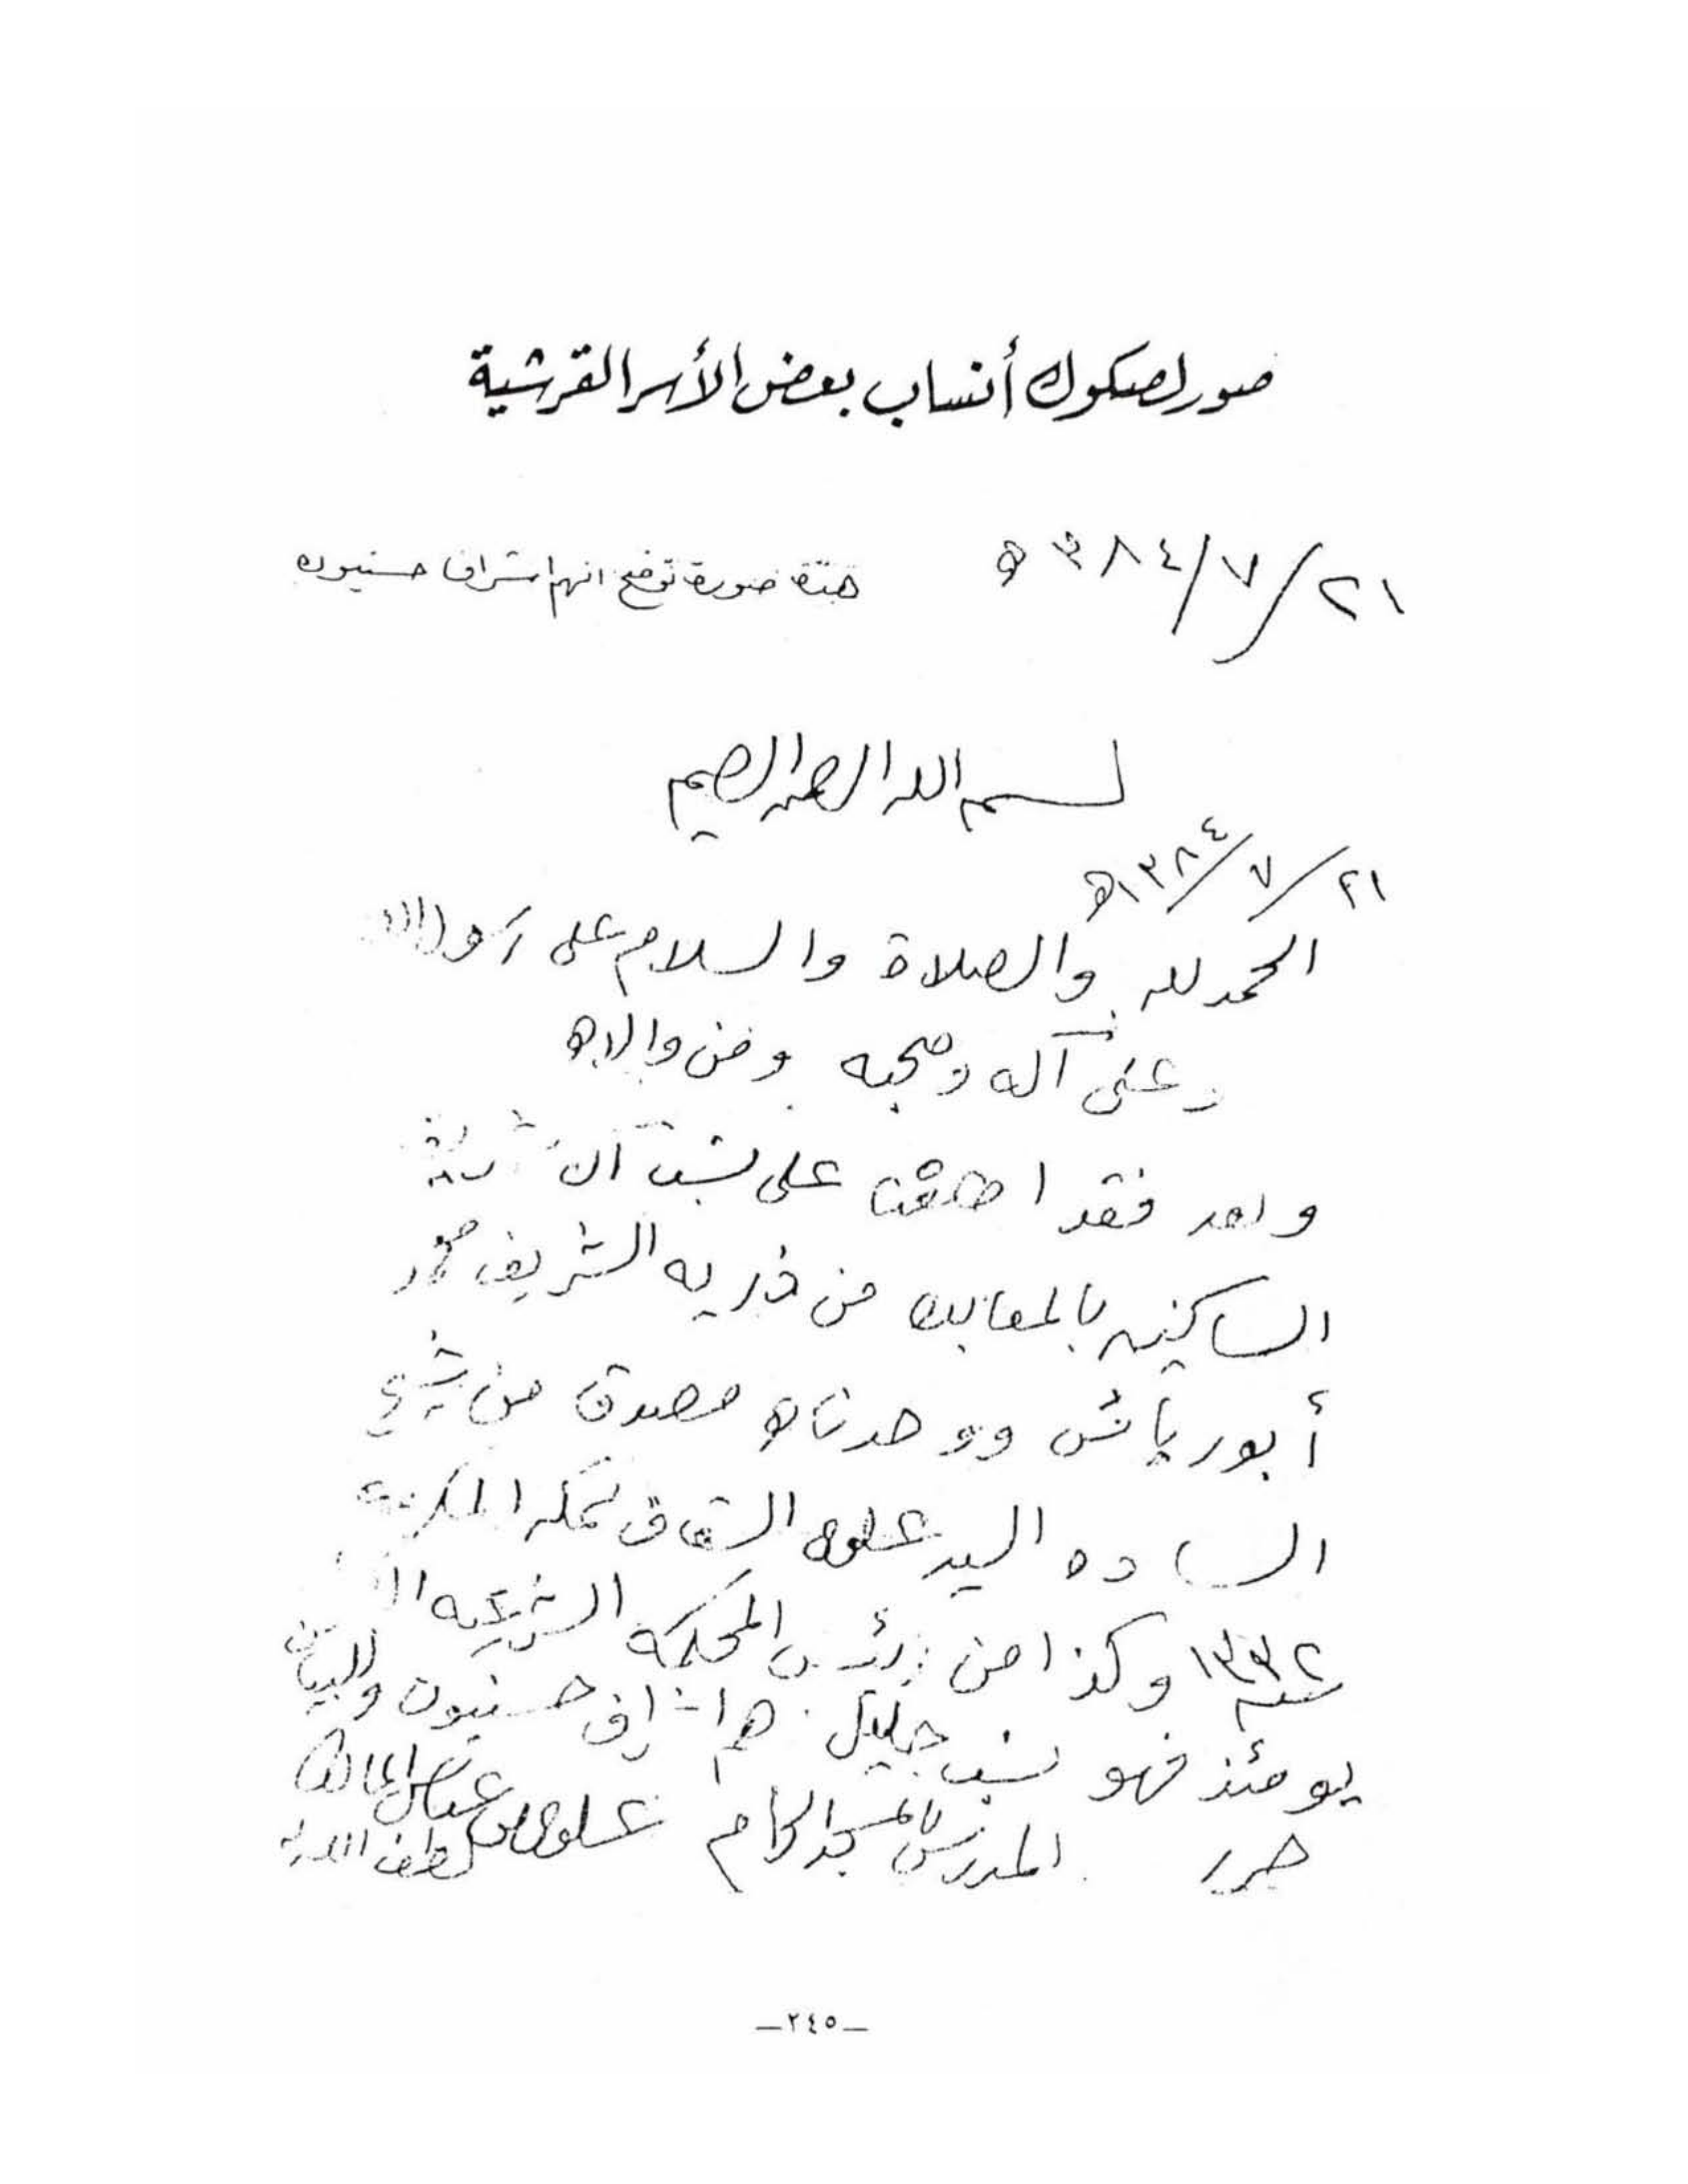 صور لصكوك أنساب بعض الأسر القرشية
٢١/٧/٣٨٤ ه هذة صورة توضح انهم اشراف حسنيون
بسم الله الرحمن الرحيم
٢١/٧/١٣٨٤ه
الحمد لله والصلاة والسلام على رسول الله
وعلى آله وصحبه ومن والاه
وبعد فقد اطلعنا على نسب آل
الساكنين بالمعابده من ذريه الشريف محمد
أبو رياش ووجدناه مصدق من شيخ
الساده السيد علوي السقاف بمكه المكرمه
سنه ١٣٣٢ وكذا من رئيس المحكمه الشرعيه
يومئذ فهو نسب جليل هم اشراف حسنيون
حرر المدرس بالمسجد الحرام علوي بن عباس المالكي
لطف الله به
—٢٤٥—